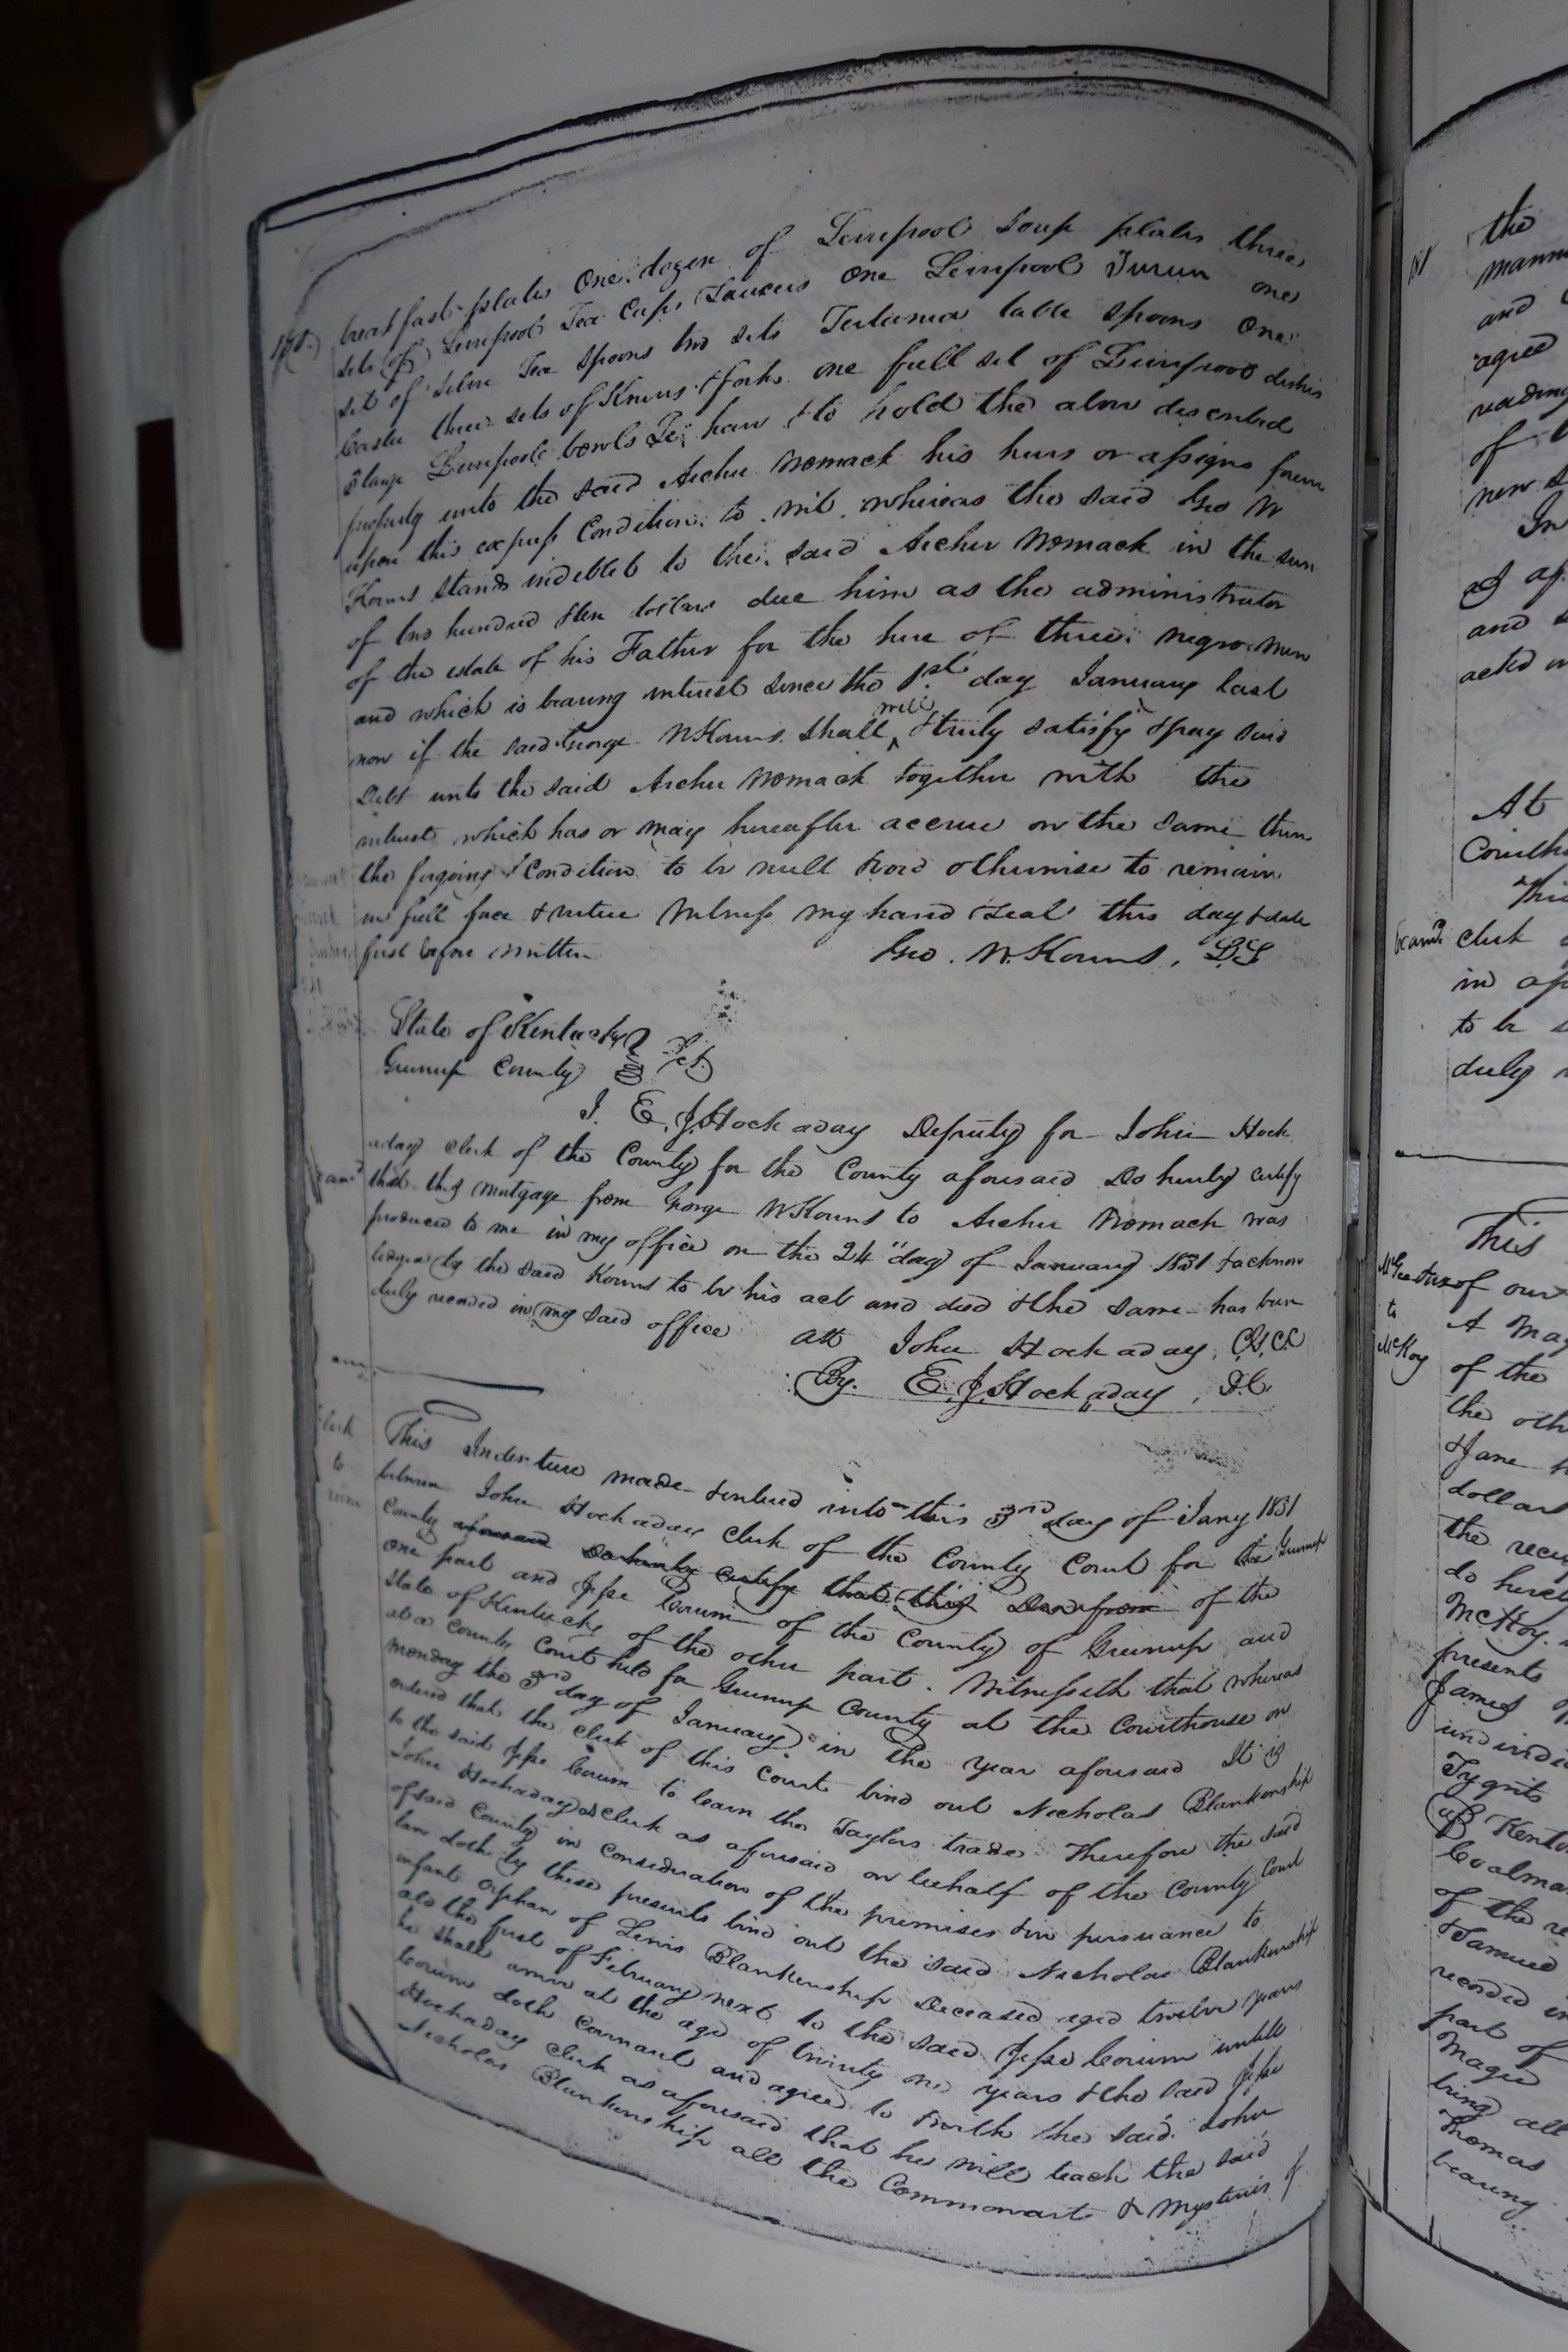 180.) breakfast plates One dozen of Liverpool Soup plates three
sets of Liverpool Tea Cups & Saucers One Liverpool Tureen one
set of Silver Tea Spoons two sets Tertania table Spoons One
Castor three sets of Knives & forks one full set of Liverpool dishes
3 large Liverpool bowls To have & to hold the above described
property unto the said Archer Womack his heirs or assigns forever
upon this express Condition, to wit, whereas the said Geo W
Kouns stands indebted to the said Archer Womack in the sum
of two hundred & ten dollars due him as the administrator
of the estate of his Father for the hire of three negro men
and which is bearing interest since the 1st day January last
now if the said George W Kouns shall well & truly satisfy & pay said
Debt unto the said Archer Womack together with the
interest which has or may hereafter accrue on the same then
the forgoing Condition to be null & void otherwise to remain
in full force & virtue Witness my hand & seal this day & date
first before written Geo. W. Kouns, LS
State of Kentucky
Greenup County Sct.
I. E. J. Hockaday Deputy for John Hock
aday clerk of the County for the County aforesaid Do hereby certify
that this mortgage from George W Kouns to Archer Womack was
produced to me in my office on the 24" day of January 1831 & acknow
ledged by the said Kouns to be his act and deed & the same has been
duly recorded in my said office Att John Hockaday, C.G.C.C
By. E. J. Hockaday, D.C.
This Indenture made & entered into this 3rd day of Jany 1831
between John Hockaday clerk of the County Court for the Greenup
County aforesaid Do hereby certify that this Deed from of the
one part and Jesse Corum of the County of Greenup and
State of Kentucky of the other part. Witnesseth that whereas
at a County Court held for Greenup County at the Courthouse on
monday the 3rd day of January in the year aforesaid It is
ordered that the clerk of this Court bind out Nicholas Blankenship
to the said Jesse Corum to learn the Taylors trade Therefore the said
John Hockaday as clerk as aforesaid on behalf of the County Court
of said County in consideration of the premises & in pursuance to
law doth by these presents bind out the said Nicholas Blankenship
infant orphan of Lewis Blankenship Deceased aged twelve years
old the first of February next to the said Jesse Corum untill
he shall arrive at the age of twenty one years & the said Jesse
Corum doth covenant and agree to & with the said John
Hockaday clerk as aforesaid that he will teach the said
Nicholas Blankenship all the Common arts & Mysteries of
181
the
and
agree
reading
of
new
In
and
acted
At
clerk
in
to be
duly
This
to
McKoy
of our
A
of the
the oth
& Jane
dollars
the
do here
McKoy
presents
James
Tygrts
of Kent
of the
& Samuel
recorded in
part of
Magee
being all
Thomas
bearing